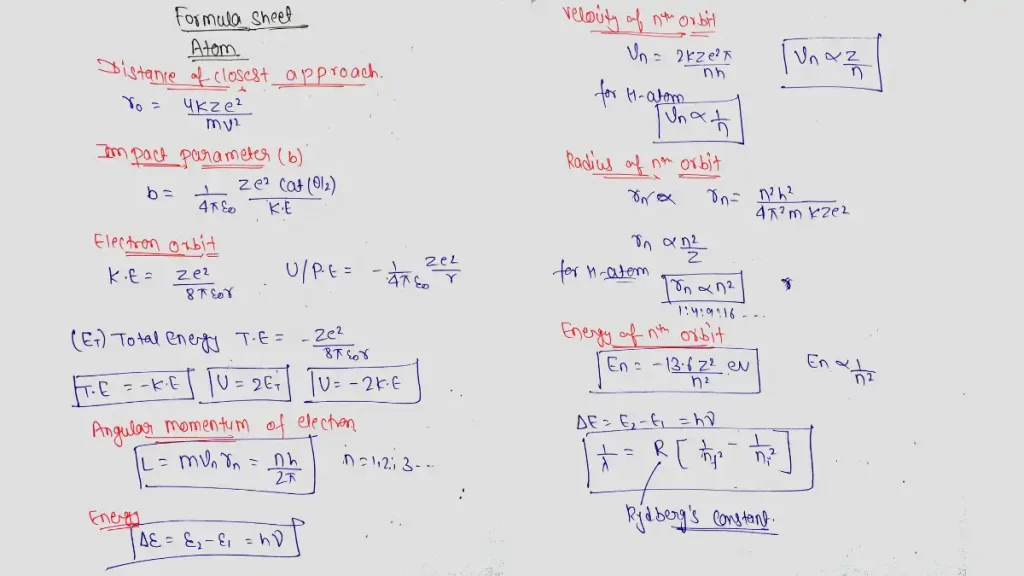 Formula sheet
Atom
Distance of closest approach.
r₀ = 4KZe² / mv²
Impact parameter (b)
b = 1/4πε₀ Ze² Cot(θ/2) / K.E
Electron orbit
K.E = Ze² / 8πε₀r U/P.E = - 1/4πε₀ Ze²/r
(E_T) Total Energy T.E = - Ze² / 8πε₀r
T.E = -K.E U = 2E_T U = -2K.E
Angular momentum of electron
L = mvₙrₙ = nh/2π n = 1,2,3--
Energy
ΔE = E₂-E₁ = hν
Velocity of nᵗʰ orbit
Vₙ = 2KZe²π / nh Vₙ ∝ Z/n
for H-atom
Vₙ ∝ 1/n
Radius of nᵗʰ orbit
rₙ ∝ rₙ = n²h² / 4π²mKZe2
rₙ ∝ n²/Z
for H-atom
rₙ ∝ n²
1:4:9:16 ---
Energy of nᵗʰ orbit
Eₙ = -13.6Z²/n² eV Eₙ ∝ 1/n²
ΔE = E₂-E₁ = hν
1/λ = R [ 1/n_f² - 1/n_i² ]
Rydberg's Constant.